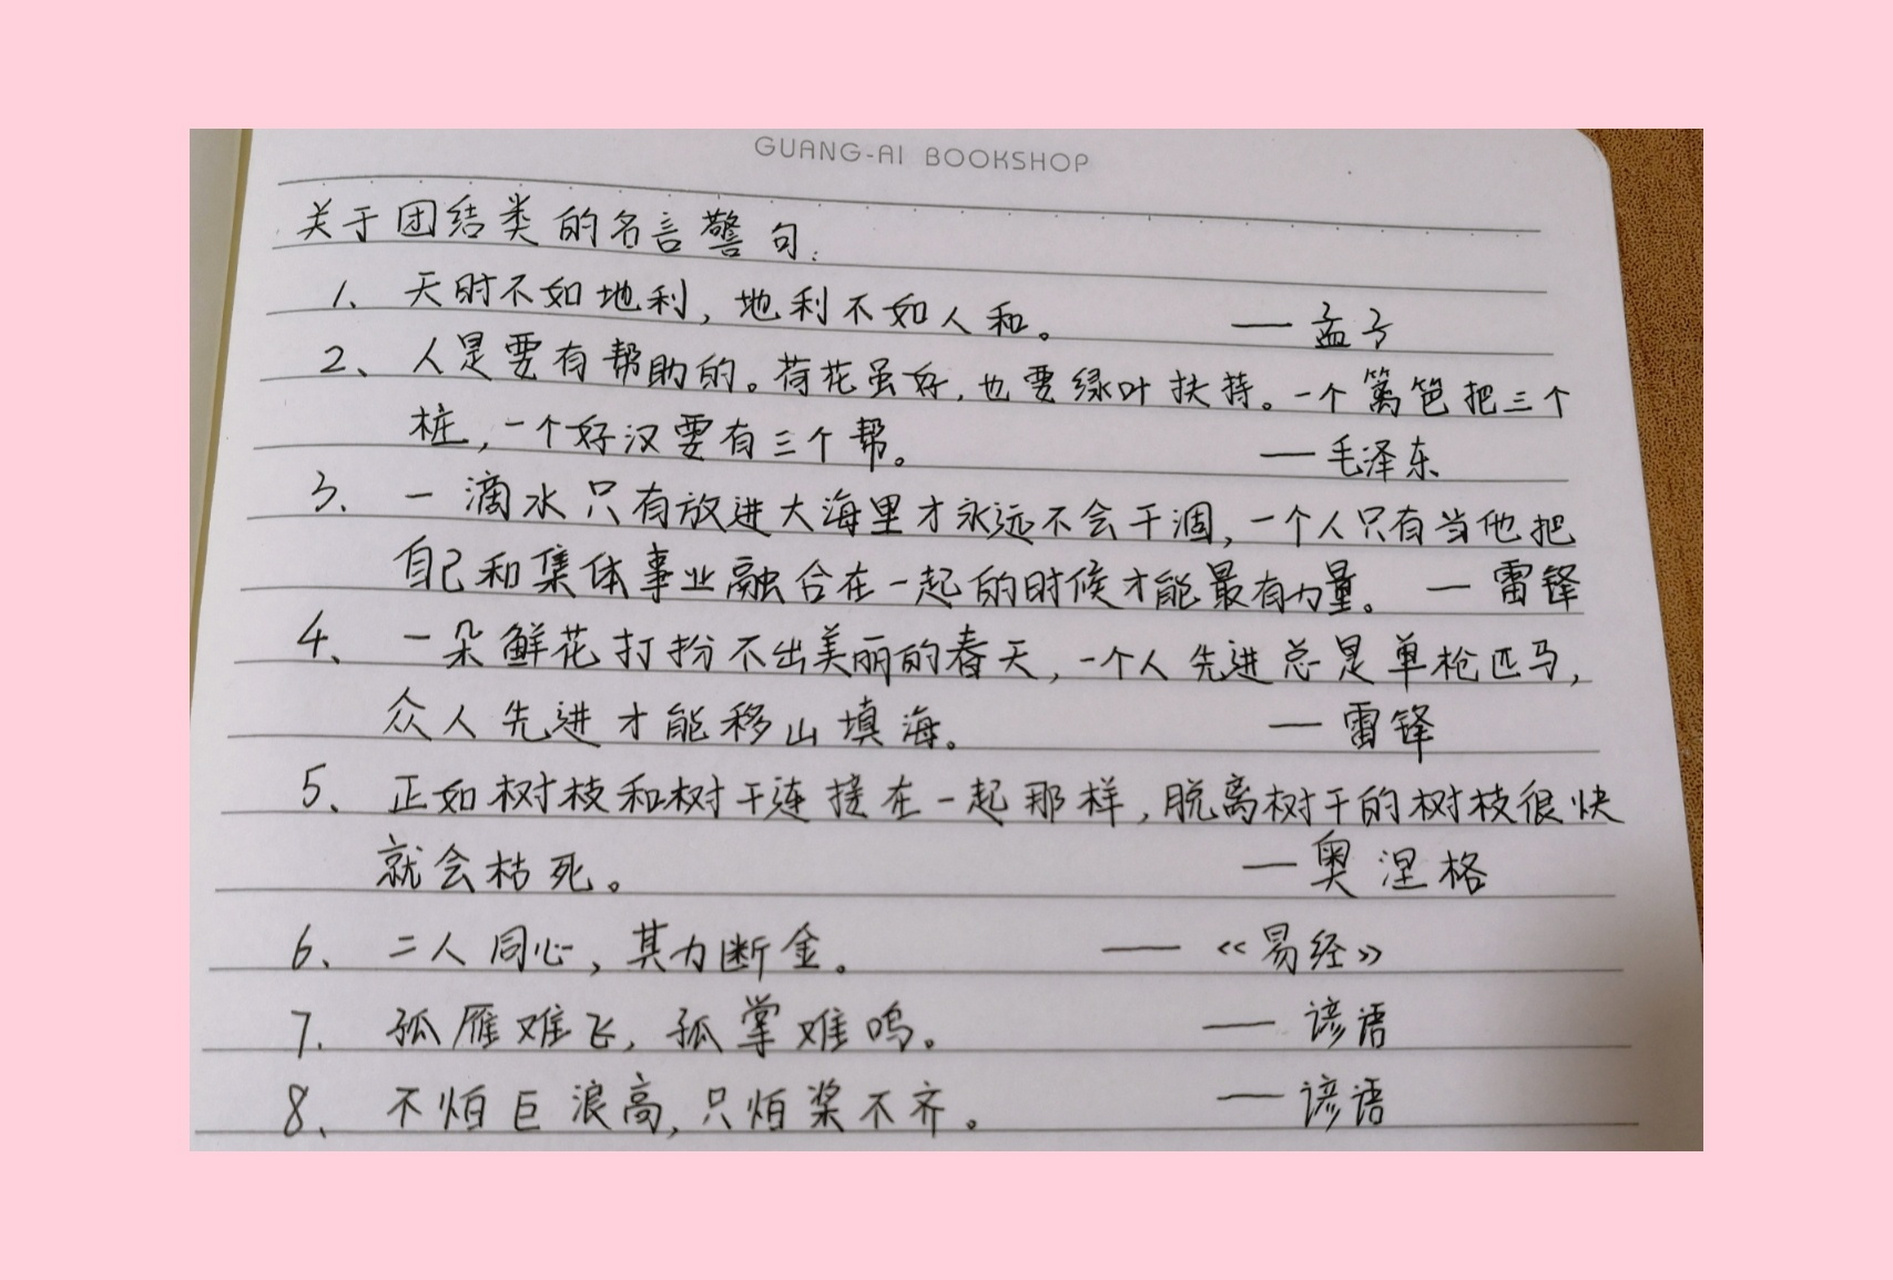 GUANG-AI BOOKSHOP
关于团结类的名言警句:
1、天时不如地利，地利不如人和。 —孟子
2、人是要有帮助的。荷花虽好，也要绿叶扶持。一个篱笆把三个
桩，一个好汉要有三个帮。 —毛泽东
3、一滴水只有放进大海里才永远不会干涸，一个人只有当他把
自己和集体事业融合在一起的时候才能最有力量。 —雷锋
4、一朵鲜花打扮不出美丽的春天，一个人先进总是单枪匹马，
众人先进才能移山填海。 —雷锋
5、正如树枝和树干连接在一起那样，脱离树干的树枝很快
就会枯死。 —奥涅格
6、二人同心，其力断金。 —《易经》
7、孤雁难飞，孤掌难鸣。 —谚语
8、不怕巨浪高，只怕桨不齐。 —谚语